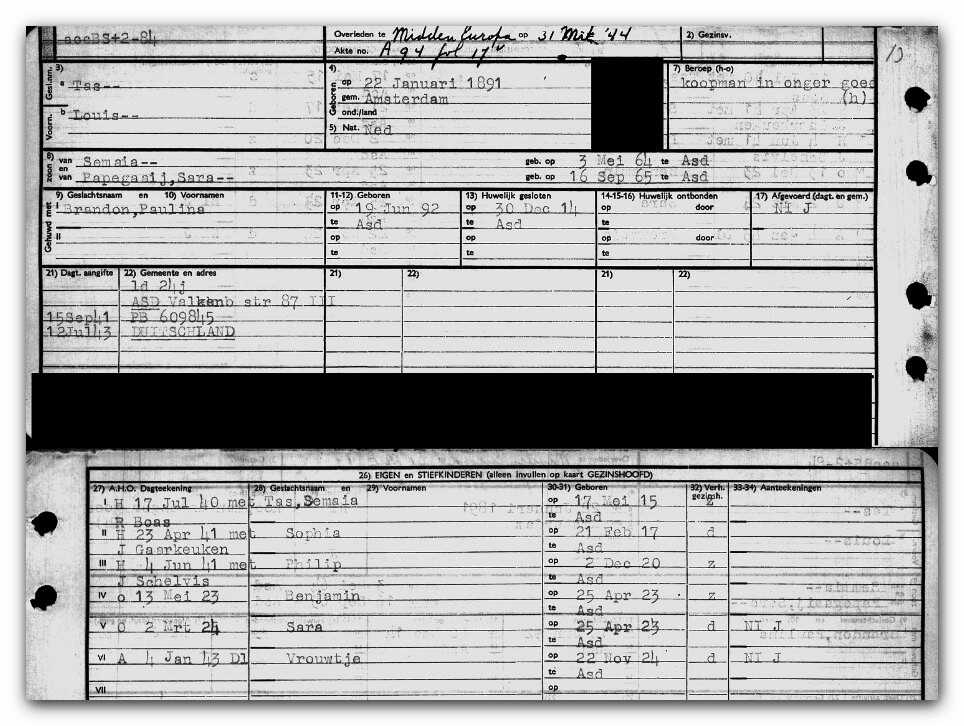 aocBS+2-84
Overleden te Midden Europa op 31 Mrt '44
2) Gezinsv.
Akte no. A 94 fol 17v
10
Gesl.nm.
3)
a Tas--
Voorn.
b Louis--
4)
Geboren
op 22 Januari 1891
gem. Amsterdam
ond./land
5) Nat. Ned
7) Beroep (h-o)
koopman in onger goed
(h)
8)
zoon
van Semaia-- geb. op 3 Mei 64 te Asd
en
van Papegaaij,Sara-- geb. op 16 Sep 65 te Asd
Gehuwd met
9) Geslachtsnaam en 10) Voornamen
11-12) Geboren
13) Huwelijk gesloten
14-15-16) Huwelijk ontbonden
17) Afgevoerd (dagt. en gem.)
I Brandon,Paulina
op 19 Jun 92
op 30 Dec 14
op door
NI J
te Asd
te Asd
te
II
op
op
op door
te
te
te
21) Dagt. aangifte 22) Gemeente en adres
21) 22)
21) 22)
ld 24j
ASD Valkenb str 87 III
15Sep41 PB 609845
12Jul43 DUITSCHLAND
26) EIGEN en STIEFKINDEREN (alleen invullen op kaart GEZINSHOOFD)
27) A.H.O. Dagteekening 28) Geslachtsnaam en 29) Voornamen 30-31) Geboren 32) Verh. gezinsh. 33-34) Aanteekeningen
I H 17 Jul 40 met Tas,Semaia op 17 Mei 15 z
R Boas te Asd
II H 23 Apr 41 met Sophia op 21 Feb 17 d
J Gaarkeuken te Asd
III H 4 Jun 41 met Philip op 2 Dec 20 z
J Schelvis te Asd
IV o 13 Mei 23 Benjamin op 25 Apr 23 z
te Asd
V o 2 Mrt 24 Sara op 25 Apr 23 d NI J
te Asd
VI A 4 Jan 43 Dl Vrouwtje op 22 Nov 24 d NI J
te Asd
VII op